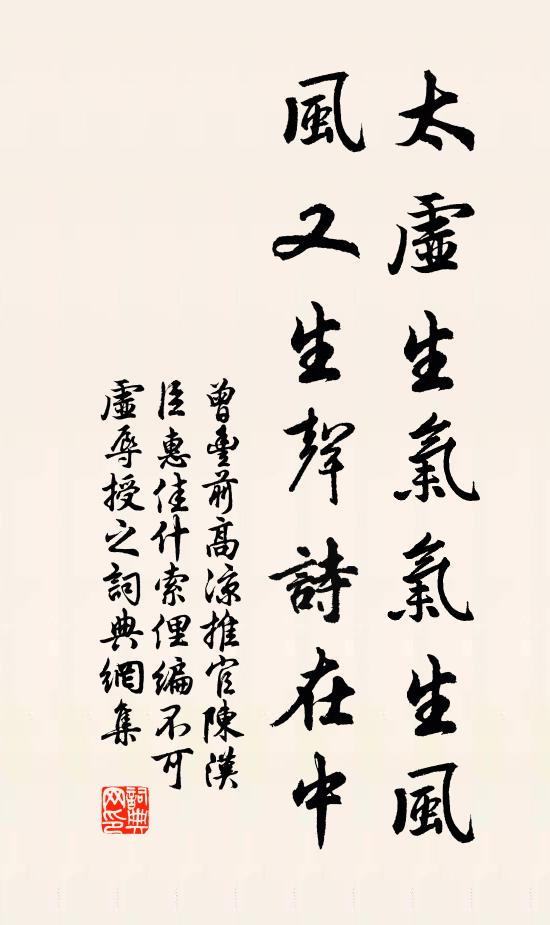 太虛生氣氣生風
風又生聲詩在中
曾豐前高涼推官陳漢
臣惠佳什索俚編不可
虛辱授之詞典網集
詞典網印